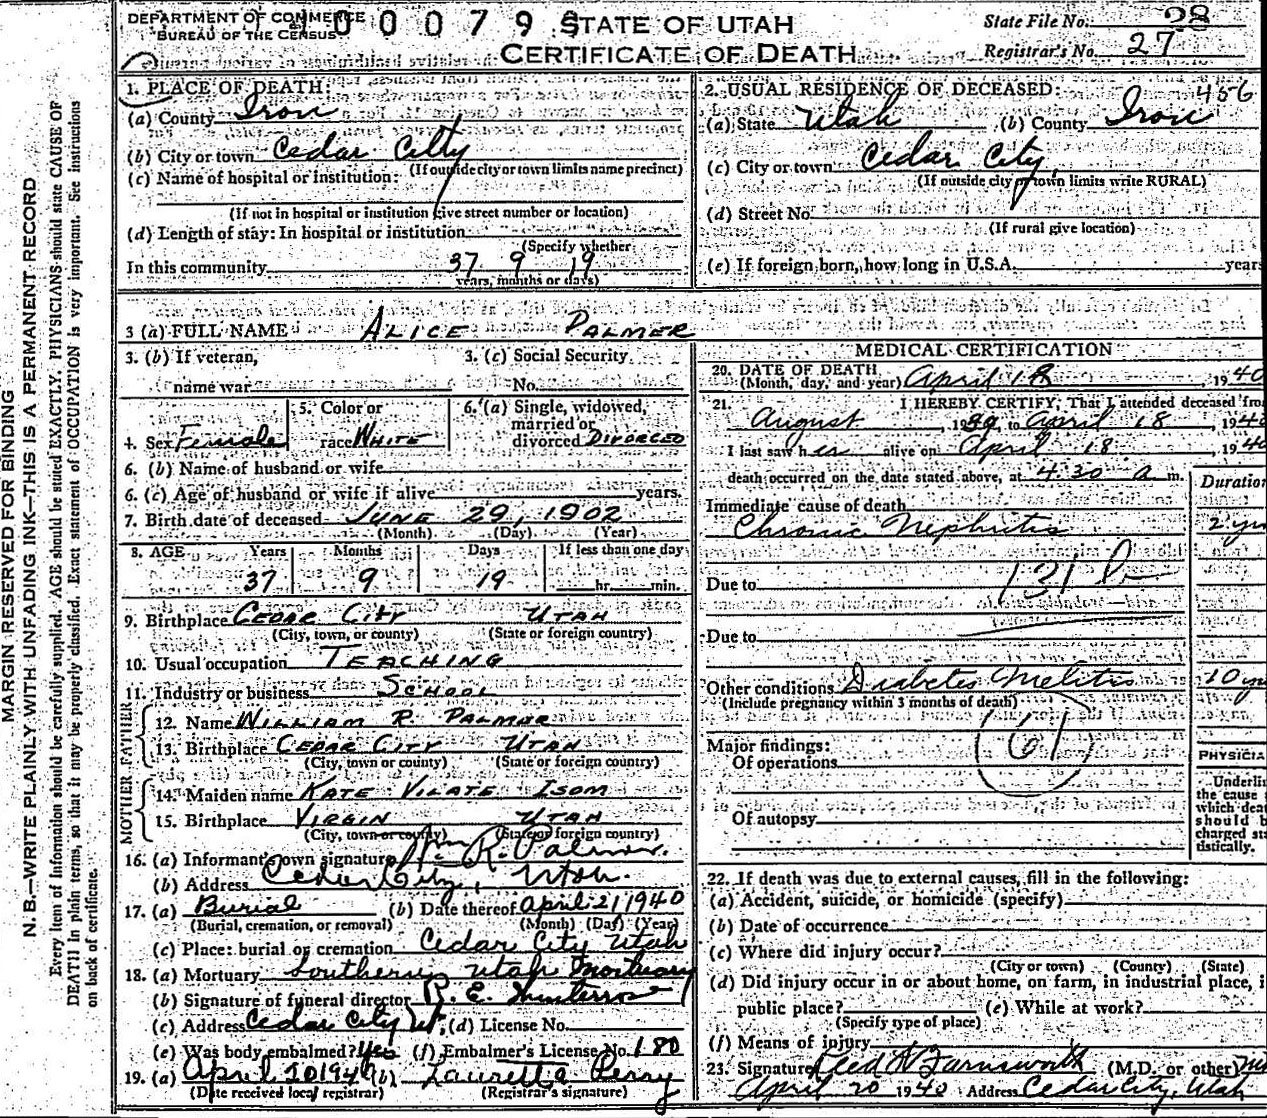 DEPARTMENT OF COMMERCE
BUREAU OF THE CENSUS
0 0 0 7 9 9
STATE OF UTAH
CERTIFICATE OF DEATH
State File No. 28
Registrar's No. 27
MARGIN RESERVED FOR BINDING
N. B.—WRITE PLAINLY WITH UNFADING INK—THIS IS A PERMANENT RECORD
Every item of information should be carefully supplied. AGE should be stated EXACTLY. PHYSICIANS should state CAUSE OF
DEATH in plain terms, so that it may be properly classified. Exact statement of OCCUPATION is very important. See instructions
on back of certificate.
1. PLACE OF DEATH:
(a) County Iron
(b) City or town Cedar City
(If outside city or town limits name precinct)
(c) Name of hospital or institution:
(If not in hospital or institution give street number or location)
(d) Length of stay: In hospital or institution
(Specify whether
In this community 37 9 19
years, months or days)
2. USUAL RESIDENCE OF DECEASED: 456
(a) State Utah (b) County Iron
(c) City or town Cedar City
(If outside city or town limits write RURAL)
(d) Street No.
(If rural give location)
(e) If foreign born, how long in U.S.A. years
3 (a) FULL NAME ALICE PALMER
3. (b) If veteran,
name war
3. (c) Social Security
No.
4. Sex Female
5. Color or
race WHITE
6. (a) Single, widowed,
married or
divorced DIVORCED
6. (b) Name of husband or wife
6. (c) Age of husband or wife if alive years.
7. Birth date of deceased JUNE 29, 1902
(Month) (Day) (Year)
8. AGE Years Months Days If less than one day
37 9 19 hr. min.
9. Birthplace CEDAR CITY UTAH
(City, town, or county) (State or foreign country)
10. Usual occupation TEACHING
11. Industry or business SCHOOL
FATHER
12. Name WILLIAM R. PALMER
13. Birthplace CEDAR CITY UTAH
(City, town or county) (State or foreign country)
MOTHER
14. Maiden name KATE VILATE ISOM
15. Birthplace VIRGIN UTAH
(City, town or county) (State or foreign country)
16. (a) Informant's own signature Wm. R. Palmer.
(b) Address Cedar City, Utah.
17. (a) Burial (b) Date thereof April 21 1940
(Burial, cremation, or removal) (Month) (Day) (Year)
(c) Place: burial or cremation Cedar City Utah
18. (a) Mortuary Southern Utah Mortuary
(b) Signature of funeral director R. E.
(c) Address Cedar City Ut. (d) License No.
(e) Was body embalmed? Yes (f) Embalmer's License No. 180
19. (a) April 20 1940 (b) Lauretta Perry
(Date received local registrar) (Registrar's signature)
MEDICAL CERTIFICATION
20. DATE OF DEATH
(Month, day, and year) April 18, 1940
21. I HEREBY CERTIFY, That I attended deceased from
August, 1939, to April 18, 1940
I last saw her alive on April 18, 1940
death occurred on the date stated above, at 4:30 a m.
Duration
Immediate cause of death
Chronic Nephritis 2 yrs
Due to 131 b
Due to
Other conditions Diabetes Melitis 10 yrs
(Include pregnancy within 3 months of death)
61
Major findings:
Of operations
Of autopsy
PHYSICIA
Underli
the cause
which dea
should b
charged sta
tistically.
22. If death was due to external causes, fill in the following:
(a) Accident, suicide, or homicide (specify)
(b) Date of occurrence
(c) Where did injury occur?
(City or town) (County) (State)
(d) Did injury occur in or about home, on farm, in industrial place, i
public place? (e) While at work?
(Specify type of place)
(f) Means of injury
23. Signature Reed W Farnsworth (M.D. or other)
April 20 1940 Address Cedar City, Utah